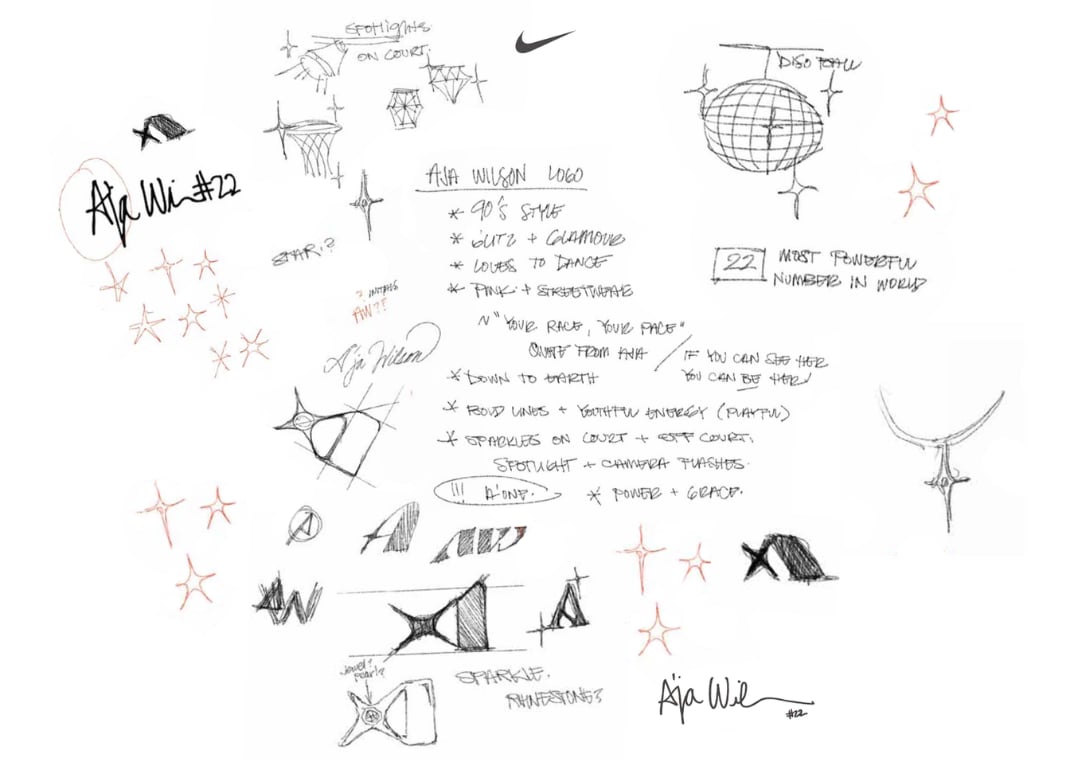 SPOTLIGHTS
ON COURT.
DISO BALL
A'ja Wi #22
AJA WILSON LOGO
* 90'S STYLE
* GLITZ + GLAMOUR
* LOVES TO DANCE
* PINK + STREETWEAR
~ "YOUR RACE, YOUR PACE"
QUOTE FROM AJA / IF YOU CAN SEE HER
YOU CAN BE HER!
* DOWN TO EARTH
* BOLD LINES + YOUTHFUL ENERGY (PLAYFUL)
* SPARKLES ON COURT + OFF COURT.
SPOTLIGHT + CAMERA FLASHES.
!!! A'ONE. * POWER + GRACE.
22 MOST POWERFUL
NUMBER IN WORLD
STAR?
? INITIALS
AW??
A'ja Wilson
A
A
AW
AW
A
jewel?
pearl?
SPARKLE.
RHINESTONE?
A'ja Wil
#22